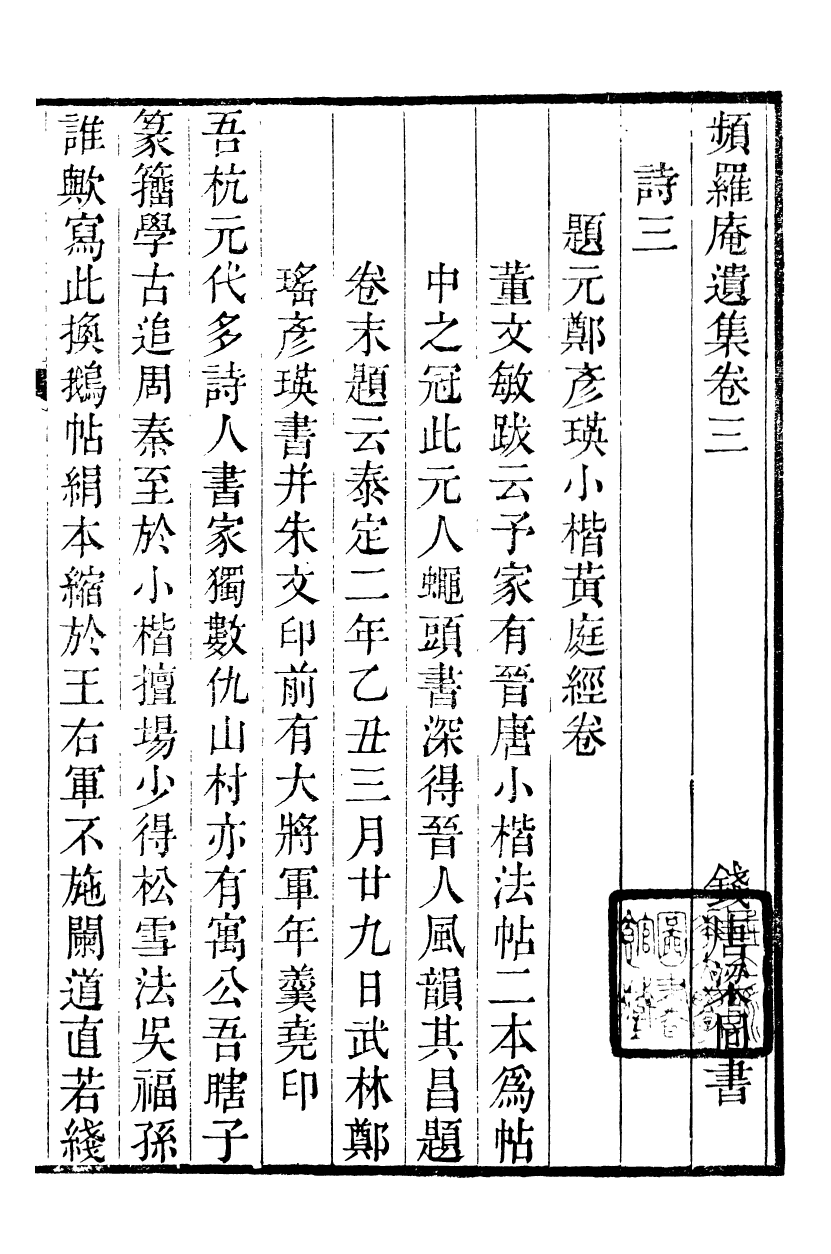 頻羅庵遺集卷三
錢唐梁同書
詩三
題元鄭彥瑛小楷黃庭經卷
董文敏跋云予家有晉唐小楷法帖二本爲帖
中之冠此元人蠅頭書深得晉人風韻其昌題
卷末題云泰定二年乙丑三月廿九日武林鄭
瑤彥瑛書并朱文印前有大將軍年羹堯印
吾杭元代多詩人書家獨數仇山村亦有寓公吾瞎子
篆籀學古追周秦至於小楷擅場少得松雪法吳福孫
誰歟寫此換鵝帖絹本縮於王右軍不施闌道直若綫